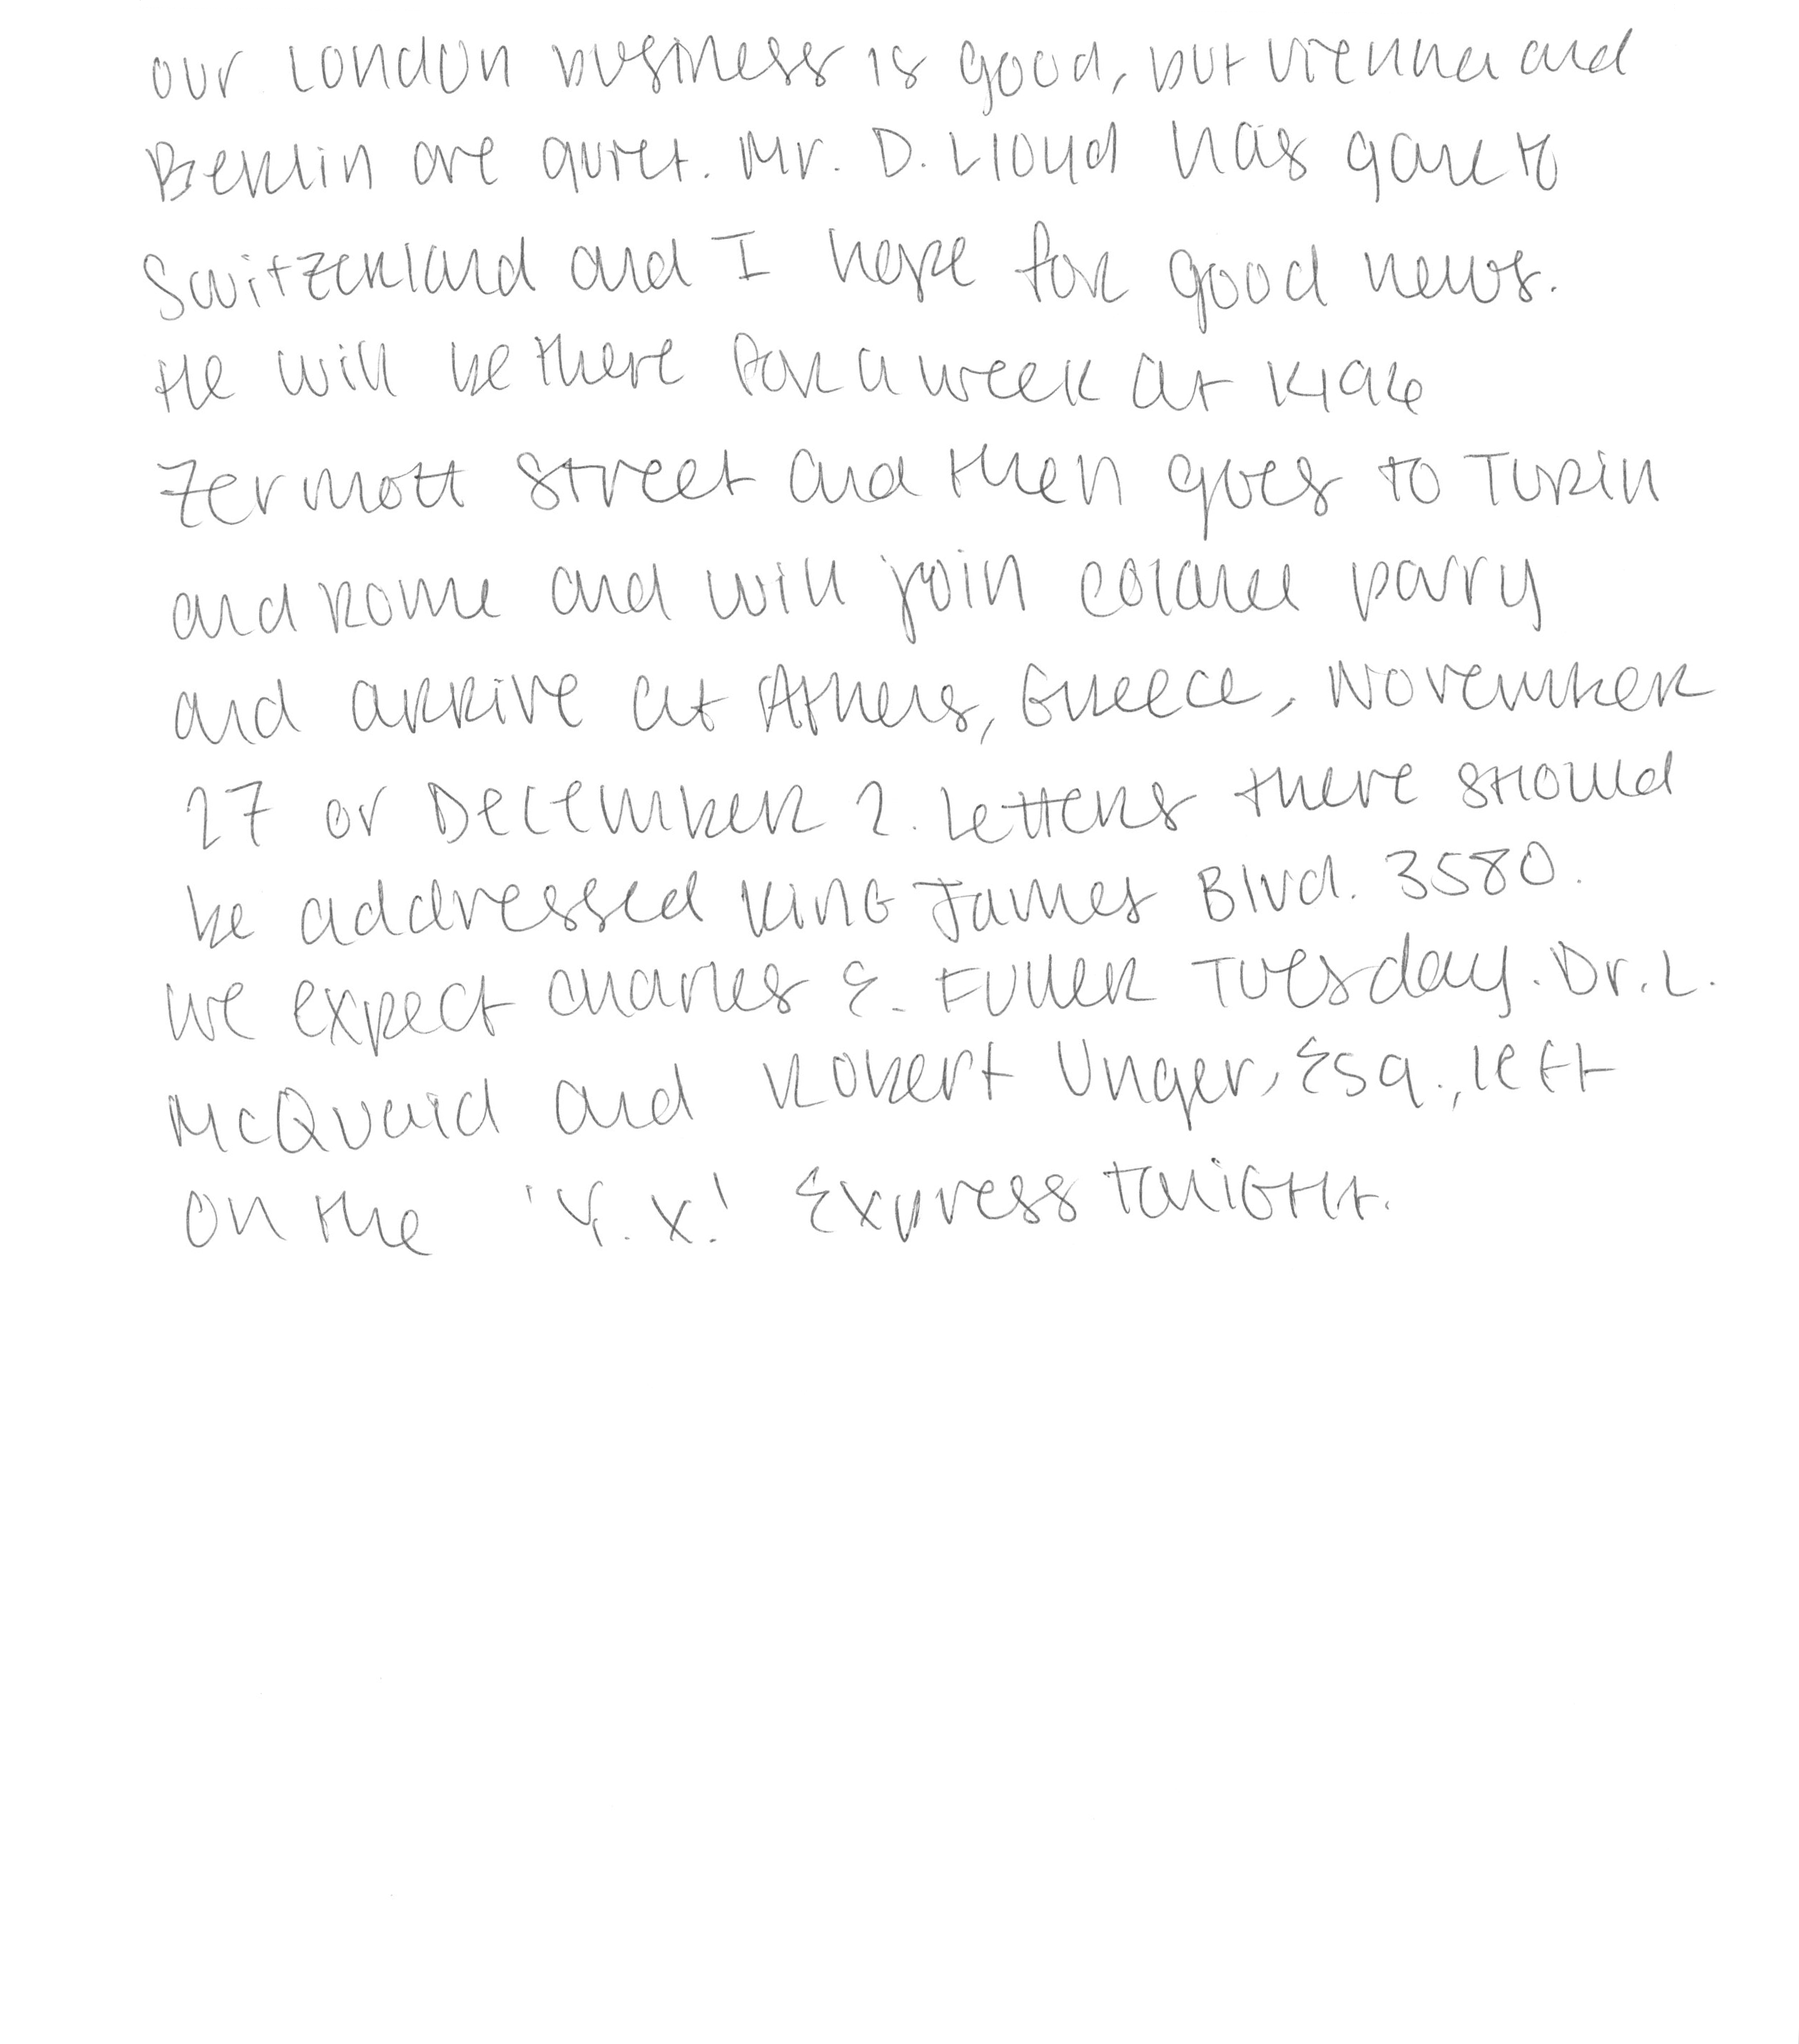 our London business is good, but Vienna and
Berlin are quiet. Mr. D. Lloyd has gone to
Switzerland and I hope for good news.
He will be there for a week at 1496
Zermott Street and then goes to Turin
and Rome and will join Colonel Parry
and arrive at Athens, Greece, November
27 or December 2. Letters there should
be addressed King James Blvd. 3580.
We expect Charles E. Fuller Tuesday. Dr. L.
McQuaid and Robert Unger, Esq., left
on the 'Y. X.' Express tonight.